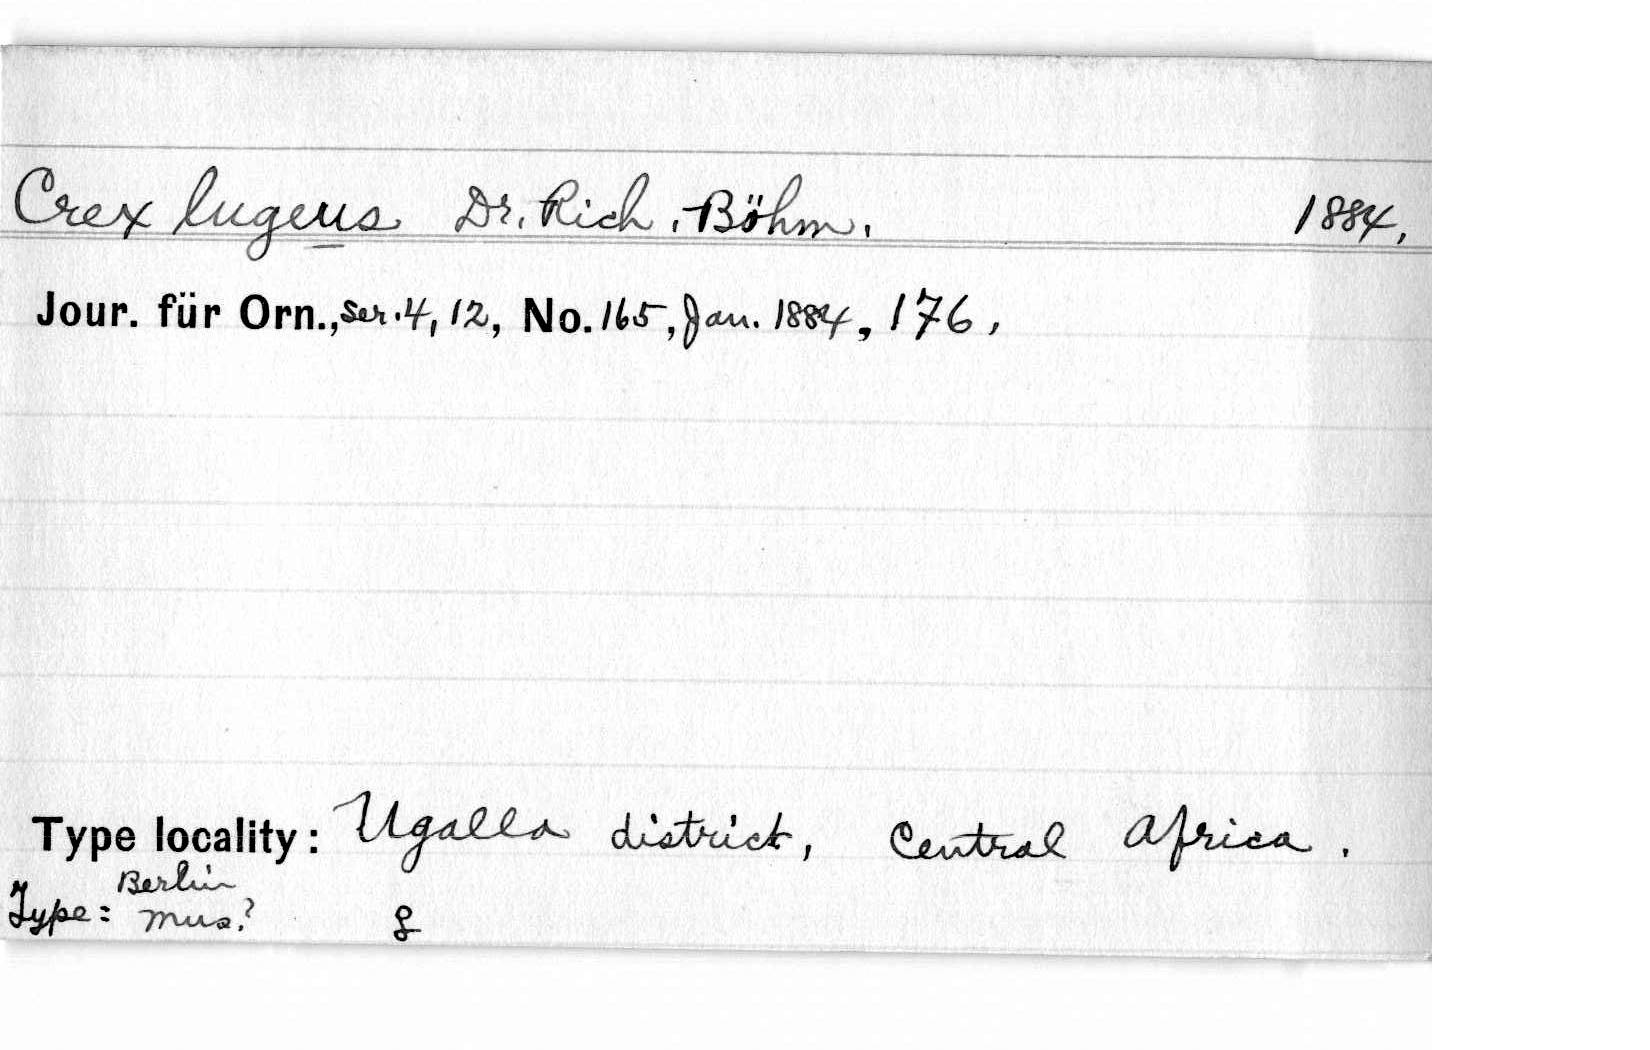 Crex lugens Dr. Rich. Böhm. 1884,
Jour. für Orn., ser. 4, 12, No. 165, Jan. 1884, 176,
Type locality: Ugalla district, Central Africa.
Berlin
Type: Mus?